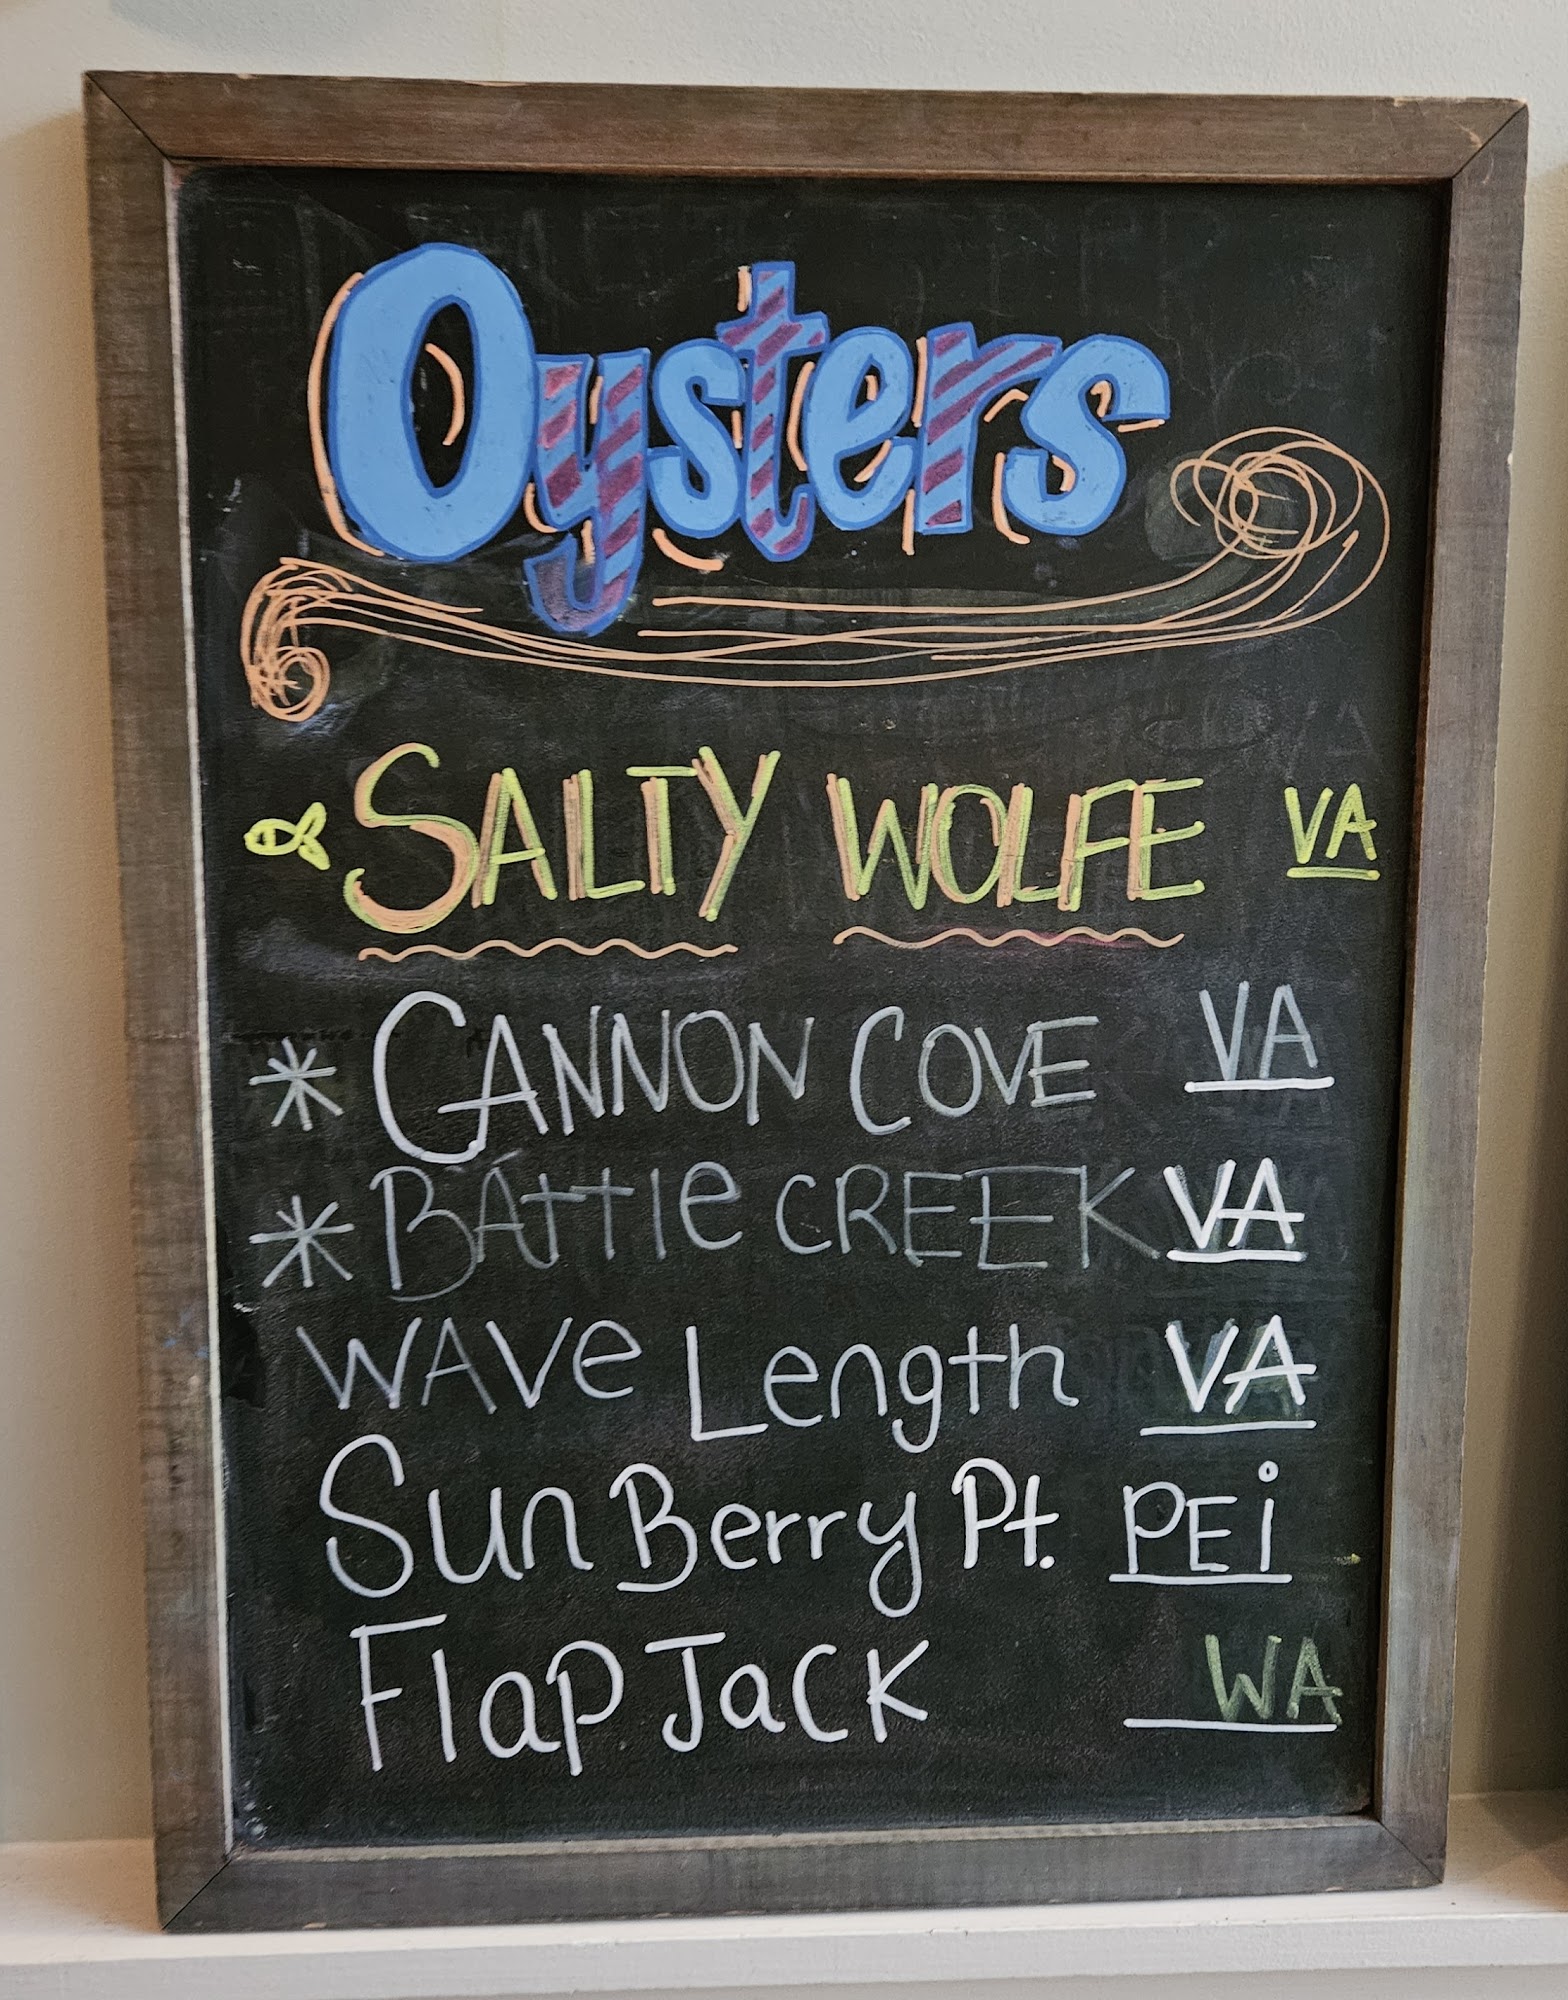 Oysters
SALTY WOLFE VA
* CANNON COVE VA
* BATTlE CREEK VA
WAVe Length VA
Sun Berry Pt. PEi
Flap JaCK WA